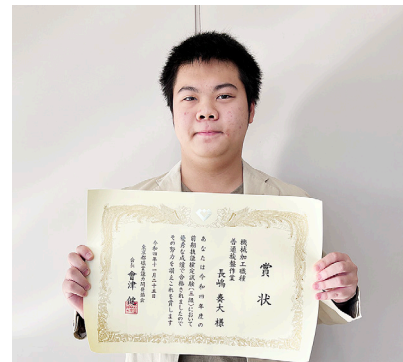 賞状
機械加工職種
普通旋盤作業
長嶋奏大様
あなたは令和四年度の
前期技能検定試験(三級)において
優秀な成績で合格されましたので
その努力を讃えこれを賞します
令和四年十一月二十五日
東京都職業能力開発協会
会長 會津 健